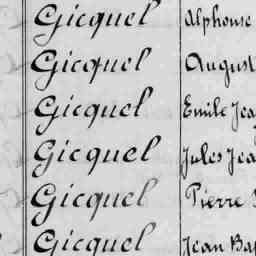 Gicquel Alphonse
Gicquel August
Gicquel Emile Jea
Gicquel Jules Jea
Gicquel Pierre
Gicquel Jean Bap